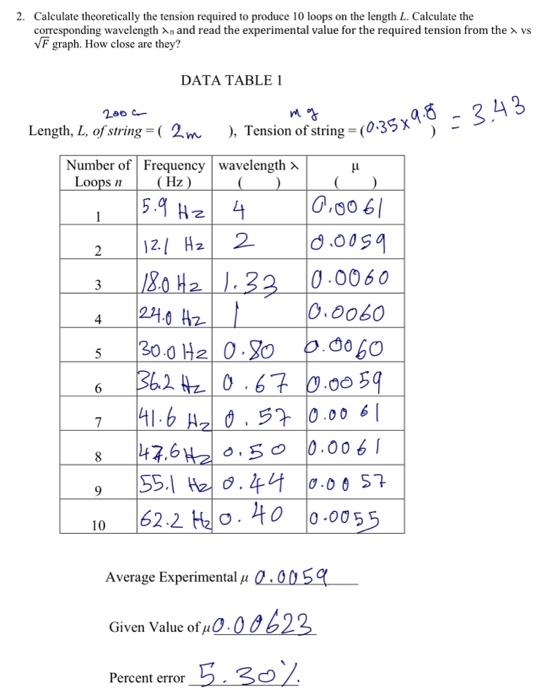 2. Calculate theoretically the tension required to produce 10 loops on the length L. Calculate the
corresponding wavelength λn and read the experimental value for the required tension from the λ vs
√F graph. How close are they?
DATA TABLE 1
200 c m g
Length, L, of string = ( 2m ), Tension of string = (0.35×9.8) = 3.43
Number of Loops n Frequency (Hz) wavelength λ ( ) μ ( )
1 5.9 Hz 4 0.0061
2 12.1 Hz 2 0.0059
3 18.0 Hz 1.33 0.0060
4 24.0 Hz 1 0.0060
5 30.0 Hz 0.80 0.0060
6 36.2 Hz 0.67 0.0059
7 41.6 Hz 0.57 0.0061
8 47.6 Hz 0.50 0.0061
9 55.1 Hz 0.44 0.0057
10 62.2 Hz 0.40 0.0055
Average Experimental μ 0.0059
Given Value of μ 0.00623
Percent error 5.30%